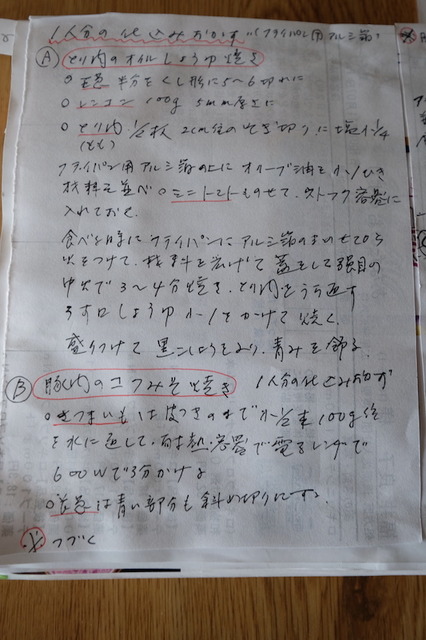 1人分の仕込みおかず(フライパン用アルミ箔)
Ⓐ とり肉のオイルしょうゆ焼き
○ 玉葱 半分をくし形に5〜6切れに
○ レンコン 100g 5mm厚さに
○ とり肉 1/2枚 2cm位のそぎ切りに塩小1/4
(もも)
フライパン用アルミ箔の上にオリーブ油を小1ひき
材料を並べ○ミニトマトものせて、ストック容器に
入れておく。
食べる時にフライパンにアルミ箔のまゝのせてから
火をつけて、材料を広げて蓋をして強目の
中火で3〜4分焼き、とり肉をうら返す
しょうゆ小1をかけて焼く。
盛りつけて黒こしょうをふり、青みを飾る。
Ⓑ 豚肉のコフみそ焼き 1人分の仕込みおかず
○さつまいもは皮つきのまゝで小1/2本100g位
を水に通して、耐熱容器で電子レンジで
600Wで3分かける
は青い部分も斜め切りにする。
つづく